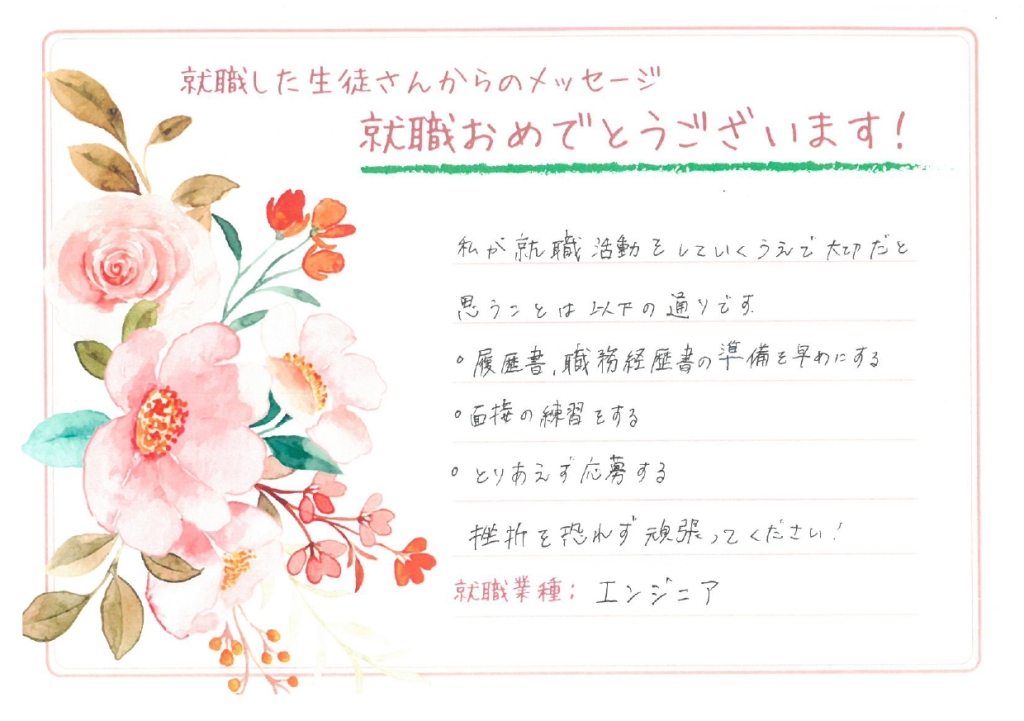 就職した生徒さんからのメッセージ
就職おめでとうございます!
私が就職活動をしていくうえで大切だと
思うことは以下の通りです.
○履歴書,職務経歴書の準備を早めにする
○面接の練習をする
○とりあえず応募する
挫折を恐れず頑張ってください!
就職業種: エンジニア